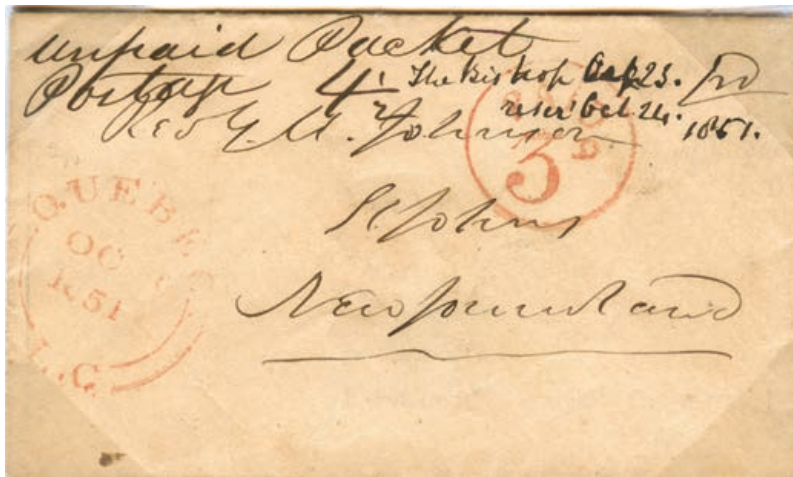 unpaid Packet
Postage 4
The Bishop Sep 23.
recd Oct. 24. 1851.
Revd G. M. Johnson
3D
St Johns
Newfoundland
QUEBEC
OC
1851
L.C.